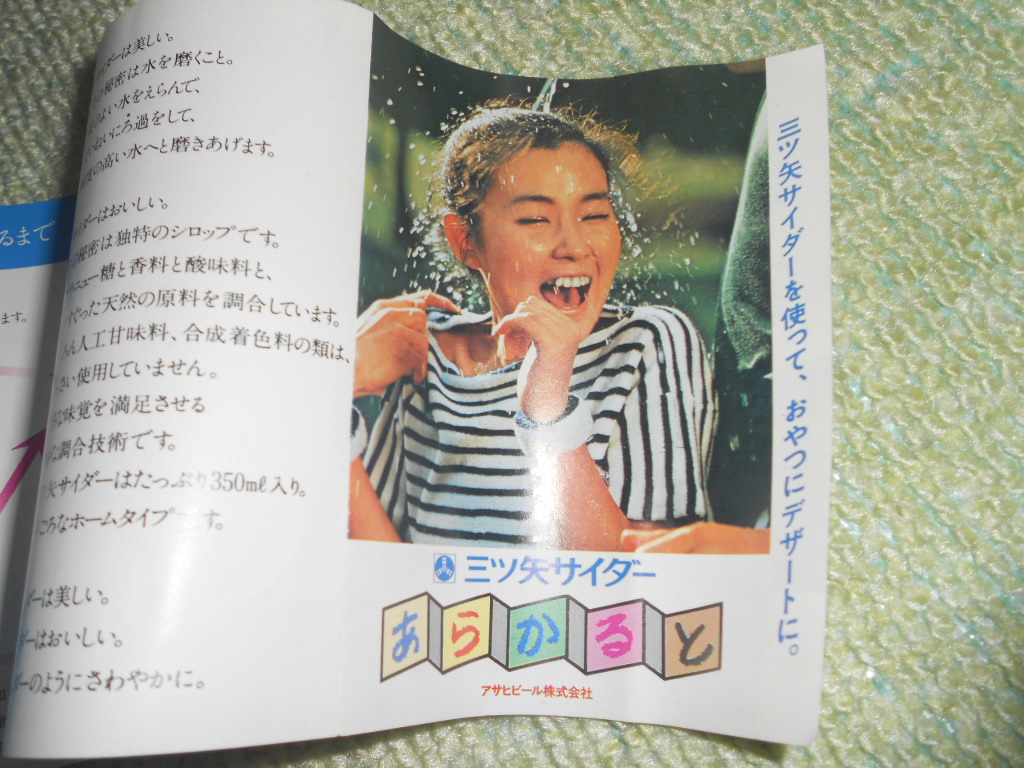 るまで
ます。
ダーは美しい。
秘密は水を磨くこと。
よい水をえらんで、
ねいにろ過をして、
の高い水へと磨きあげます。
イダーはおいしい。
秘密は独特のシロップです。
ニュー糖と香料と酸味料と、
やった天然の原料を調合しています。
人工甘味料、合成着色料の類は、
使用していません。
味覚を満足させる
調合技術です。
矢サイダーはたっぷり350mℓ入り。
ごろなホームタイプです。
ダーは美しい。
ダーはおいしい。
ダーのようにさわやかに。
三ツ矢サイダーを使って、おやつにデザートに。
三ツ矢サイダー
あらかると
アサヒビール株式会社